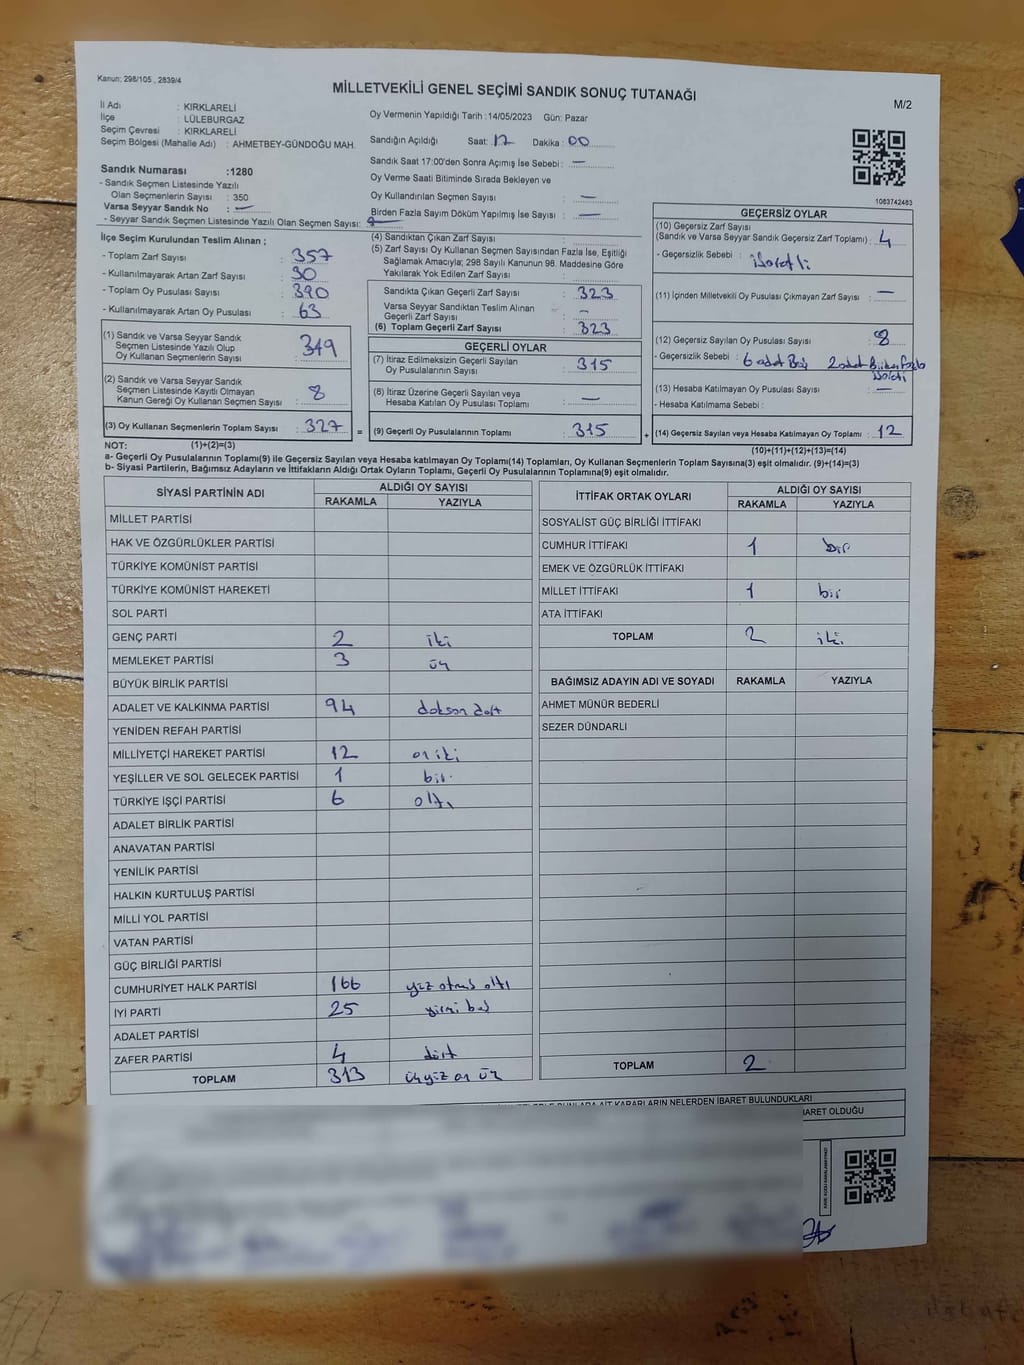 Kanun: 298/105 , 2839/4
MİLLETVEKİLİ GENEL SEÇİMİ SANDIK SONUÇ TUTANAĞI
M/2
İl Adı : KIRKLARELİ
İlçe : LÜLEBURGAZ
Seçim Çevresi : KIRKLARELİ
Seçim Bölgesi (Mahalle Adı) : AHMETBEY-GÜNDOĞU MAH.
Sandık Numarası :1280
- Sandık Seçmen Listesinde Yazılı
Olan Seçmenlerin Sayısı : 350
Varsa Seyyar Sandık No : —
- Seyyar Sandık Seçmen Listesinde Yazılı Olan Seçmen Sayısı:
Oy Vermenin Yapıldığı Tarih :14/05/2023 Gün: Pazar
Sandığın Açıldığı Saat: 17 Dakika : 00
Sandık Saat 17:00'den Sonra Açımış İse Sebebi : —
Oy Verme Saati Bitiminde Sırada Bekleyen ve
Oy Kullandırılan Seçmen Sayısı : —
Birden Fazla Sayım Döküm Yapılmış İse Sayısı : —
1063742483
İlçe Seçim Kurulundan Teslim Alınan ;
- Toplam Zarf Sayısı : 357
- Kullanılmayarak Artan Zarf Sayısı : 30
- Toplam Oy Pusulası Sayısı : 390
- Kullanılmayarak Artan Oy Pusulası : 63
(1) Sandık ve Varsa Seyyar Sandık
Seçmen Listesinde Yazılı Olup
Oy Kullanan Seçmenlerin Sayısı : 319
(2) Sandık ve Varsa Seyyar Sandık
Seçmen Listesinde Kayıtlı Olmayan
Kanun Gereği Oy Kullanan Seçmen Sayısı : 8
(3) Oy Kullanan Seçmenlerin Toplam Sayısı : 327
(4) Sandıktan Çıkan Zarf Sayısı :
(5) Zarf Sayısı Oy Kullanan Seçmen Sayısından Fazla İse, Eşitliği
Sağlamak Amacıyla; 298 Sayılı Kanunun 98. Maddesine Göre
Yakılarak Yok Edilen Zarf Sayısı :
Sandıkta Çıkan Geçerli Zarf Sayısı : 323
Varsa Seyyar Sandıktan Teslim Alınan
Geçerli Zarf Sayısı : —
(6) Toplam Geçerli Zarf Sayısı : 323
GEÇERLİ OYLAR
(7) İtiraz Edilmeksizin Geçerli Sayılan
Oy Pusulalarının Sayısı : 315
(8) İtiraz Üzerine Geçerli Sayılan veya
Hesaba Katılan Oy Pusulası Toplamı : —
= (9) Geçerli Oy Pusulalarının Toplamı : 315
GEÇERSİZ OYLAR
(10) Geçersiz Zarf Sayısı
(Sandık ve Varsa Seyyar Sandık Geçersiz Zarf Toplamı) : 4
- Geçersizlik Sebebi :
(11) İçinden Milletvekili Oy Pusulası Çıkmayan Zarf Sayısı : —
(12) Geçersiz Sayılan Oy Pusulası Sayısı : 8
- Geçersizlik Sebebi : 6 adet Boş 2 adet
(13) Hesaba Katılmayan Oy Pusulası Sayısı : —
- Hesaba Katılmama Sebebi :
+ (14) Geçersiz Sayılan veya Hesaba Katılmayan Oy Toplamı : 12
NOT: (1)+(2)=(3)
(10)+(11)+(12)+(13)=(14)
a- Geçerli Oy Pusulası Toplamı(9) ile Geçersiz Sayılan veya Hesaba katılmayan Oy Toplamı(14) Toplamları, Oy Kullanan Seçmenlerin Toplam Sayısına(3) eşit olmalıdır. (9)+(14)=(3)
b- Siyasi Partilerin, Bağımsız Adayların ve İttifakların Aldığı Ortak Oyların Toplamı, Geçerli Oy Pusulalarının Toplamına(9) eşit olmalıdır.
SİYASİ PARTİNİN ADI ALDIĞI OY SAYISI
RAKAMLA YAZIYLA
MİLLET PARTİSİ
HAK VE ÖZGÜRLÜKLER PARTİSİ
TÜRKİYE KOMÜNİST PARTİSİ
TÜRKİYE KOMÜNİST HAREKETİ
SOL PARTİ
GENÇ PARTİ 2 iki
MEMLEKET PARTİSİ 3 üç
BÜYÜK BİRLİK PARTİSİ
ADALET VE KALKINMA PARTİSİ 94 doksan dört
YENİDEN REFAH PARTİSİ
MİLLİYETÇİ HAREKET PARTİSİ 12 on iki
YEŞİLLER VE SOL GELECEK PARTİSİ 1 bir
TÜRKİYE İŞÇİ PARTİSİ 6 altı
ADALET BİRLİK PARTİSİ
ANAVATAN PARTİSİ
YENİLİK PARTİSİ
HALKIN KURTULUŞ PARTİSİ
MİLLİ YOL PARTİSİ
VATAN PARTİSİ
GÜÇ BİRLİĞİ PARTİSİ
CUMHURİYET HALK PARTİSİ 166 yüz atmış altı
İYİ PARTİ 25 yirmi beş
ADALET PARTİSİ
ZAFER PARTİSİ 4 dört
TOPLAM 313 üçyüz on üç
İTTİFAK ORTAK OYLARI ALDIĞI OY SAYISI
RAKAMLA YAZIYLA
SOSYALİST GÜÇ BİRLİĞİ İTTİFAKI
CUMHUR İTTİFAKI 1 bir
EMEK VE ÖZGÜRLÜK İTTİFAKI
MİLLET İTTİFAKI 1 bir
ATA İTTİFAKI
TOPLAM 2 iki
BAĞIMSIZ ADAYIN ADI VE SOYADI RAKAMLA YAZIYLA
AHMET MÜNÜR BEDERLİ
SEZER DÜNDARLI
TOPLAM 2
KARARLARIN NELERDEN İBARET BULUNDUKLARI
BARET OLDUĞU